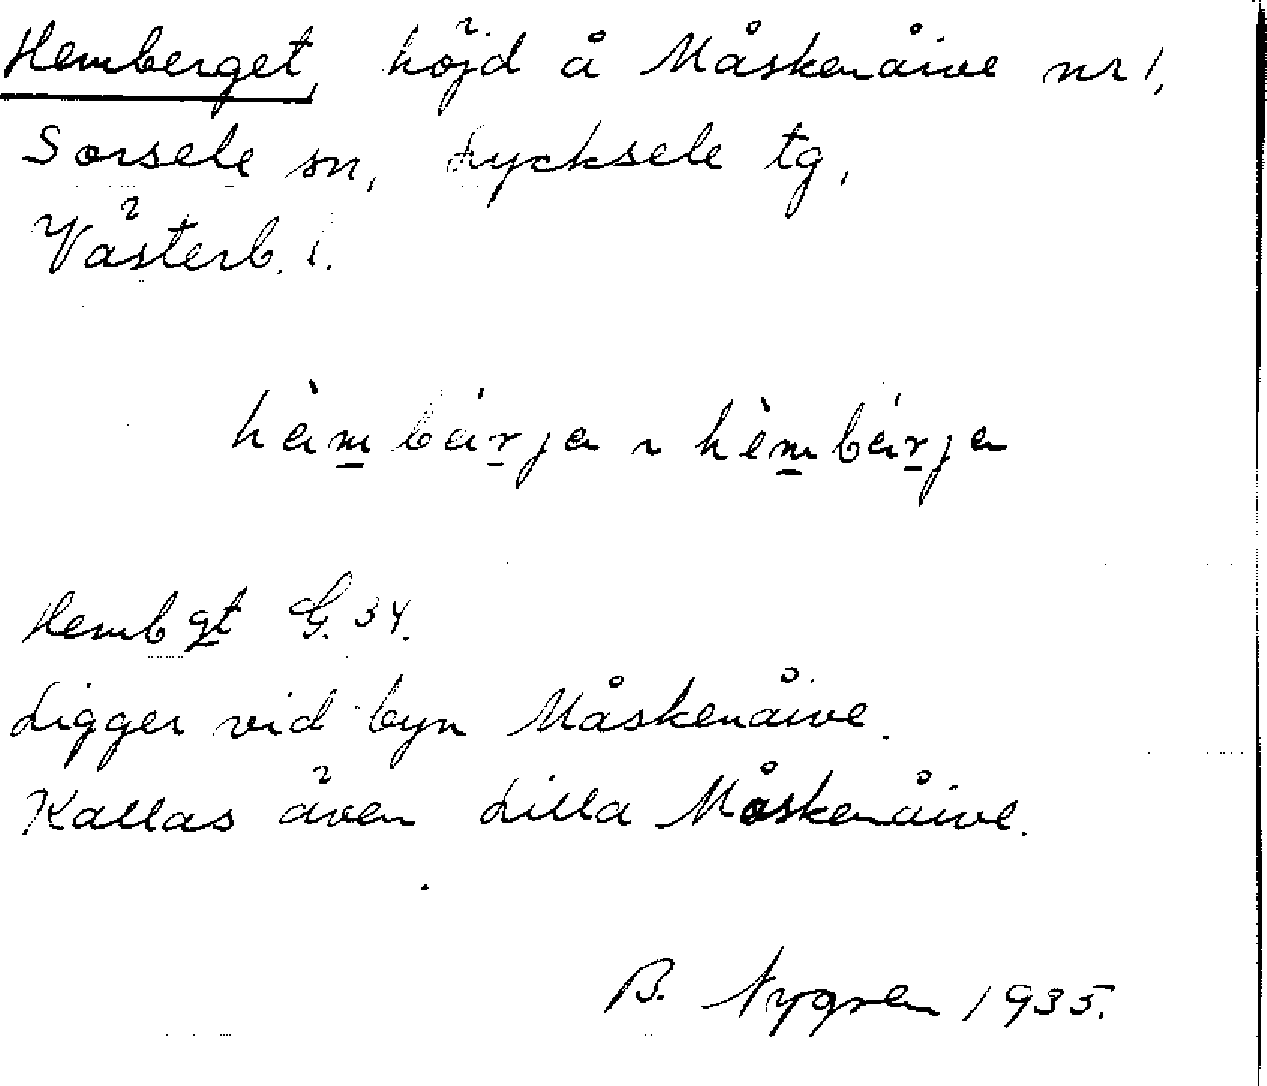 Hemberget, höjd å Måskenåive nr 1,
Sorsele sn, Lycksele tg,
Västerb. l.
hèm̲bár̲ja ~ hèm̲bár̲ja
Hembgt G. 34.
Ligger vid byn Måskenåive.
Kallas även Lilla Måskenåive.
B. Nygren 1935.